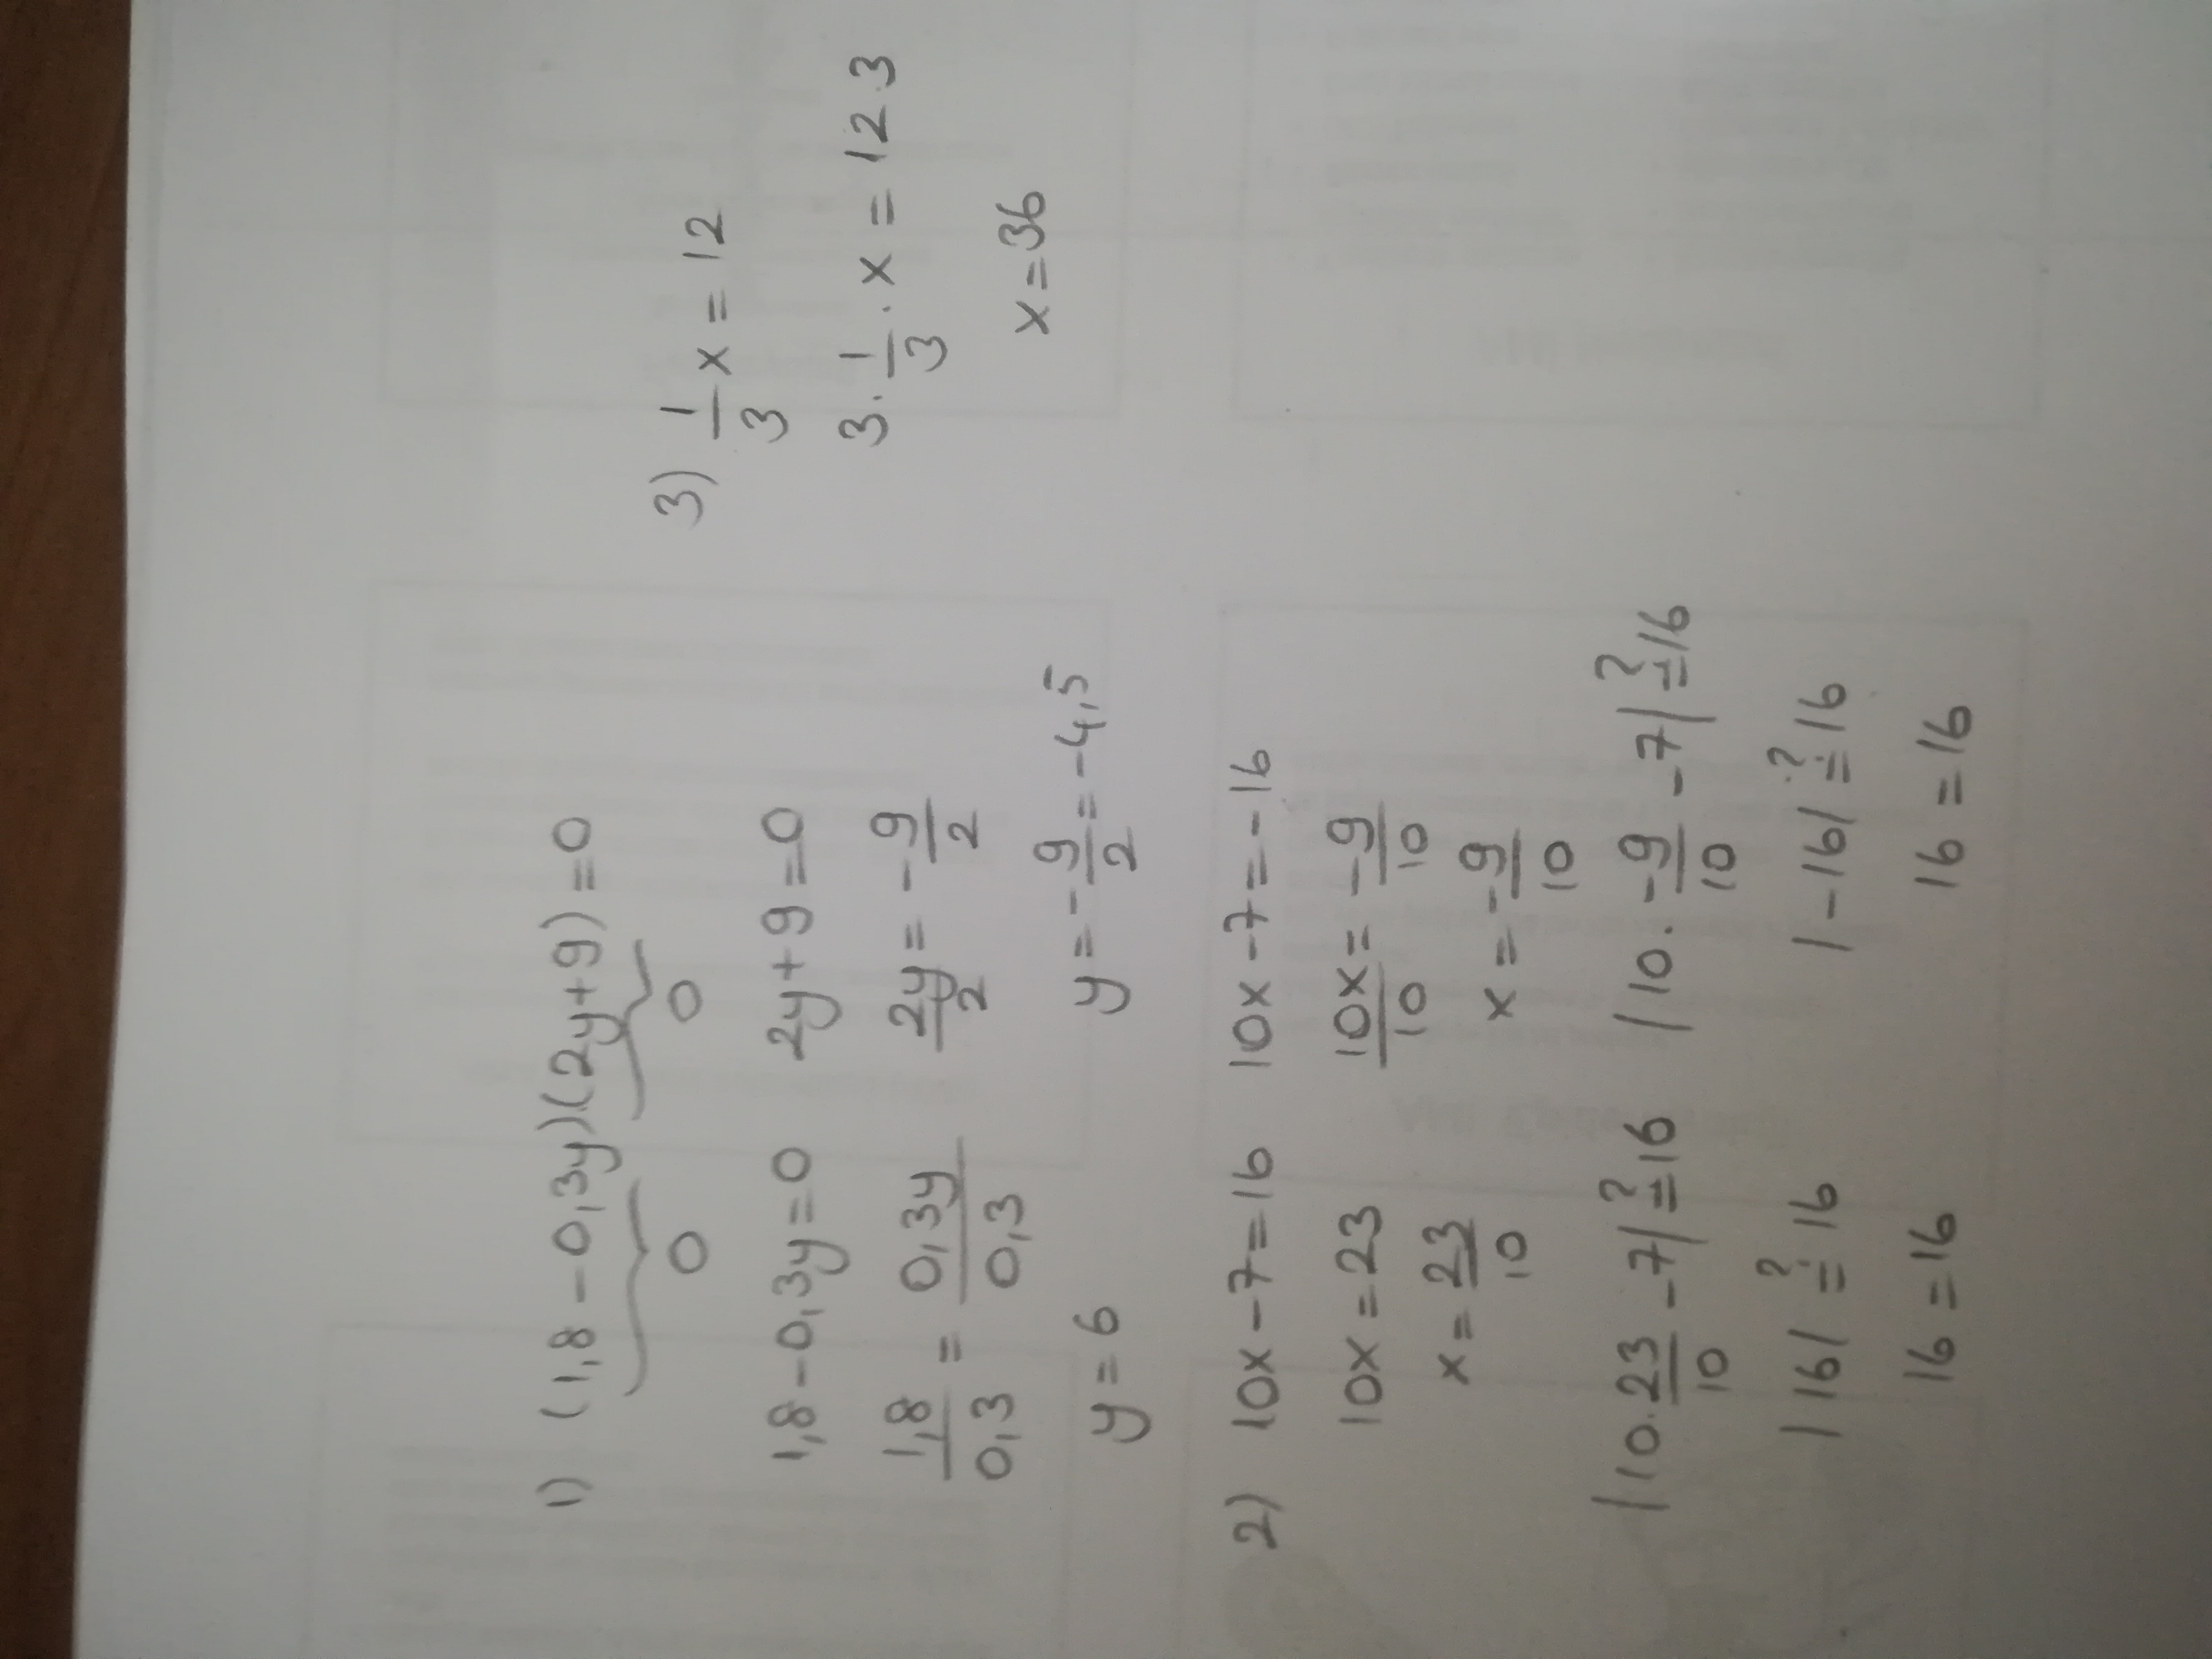 1) (1,8 - 0,3y)(2y+9)=0
0 0
1,8-0,3y=0 2y+9=0
1,8/0,3 = 0,3y/0,3 2y/2 = -9/2
y=6 y=-9/2=-4,5
2) 10x-7=16 10x-7=-16
10x=23 10x/10=-9/10
x=23/10 x=-9/10
|10.23/10-7|≟16 |10.-9/10-7|≟16
|16|≟16 |-16|≟16
16=16 16=16
3) 1/3x=12
3.1/3.x=12.3
x=36